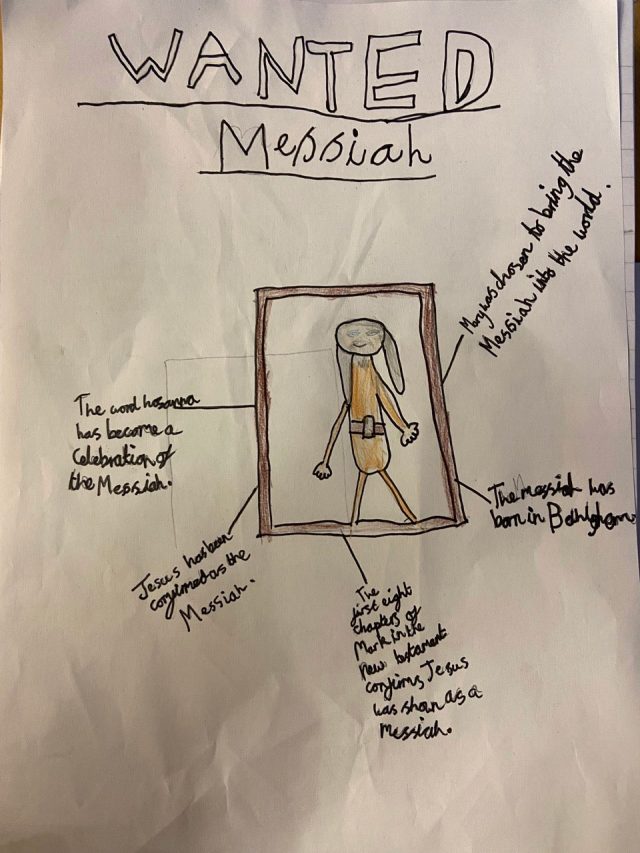 WANTED
Messiah
Mary was chosen to bring the
Messiah into the world.
The word hosanna
has become a
Celebration of
the Messiah.
The messiah was
born in Bethlehem.
Jesus has been
confirmed as the
Messiah.
The
first eight
chapters of
Mark in the
new testament
confirms Jesus
was shown as a
Messiah.